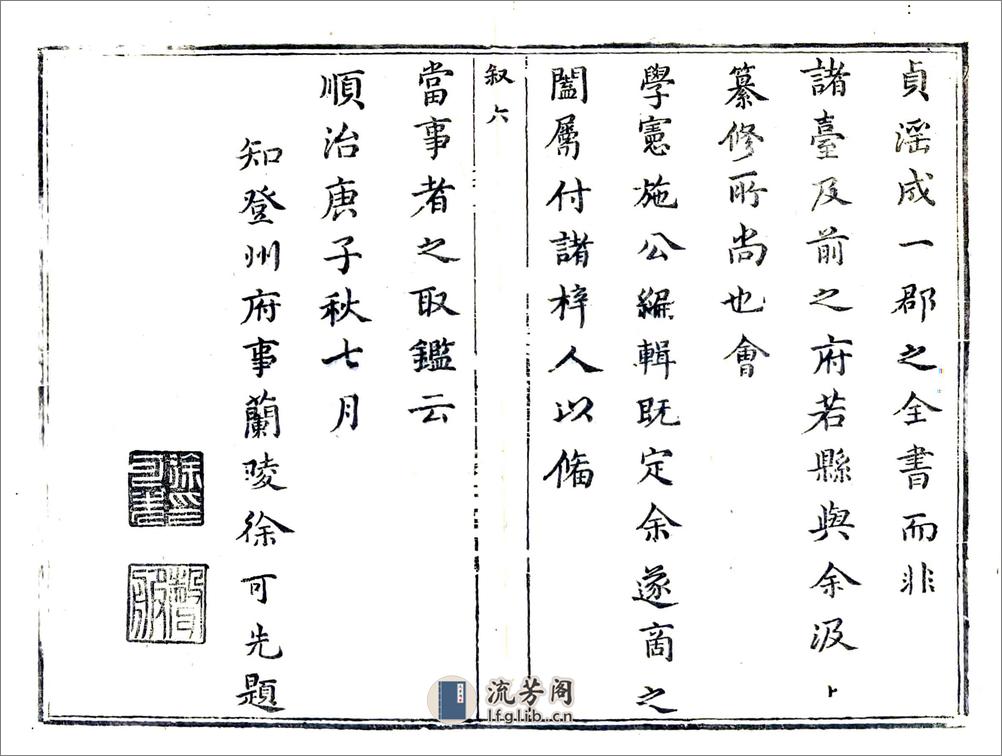 貞滛成一郡之全書而非
諸臺及前之府若縣與余汲〻
纂修所尚也會
學憲施公編輯既定余遂商之
闔属付諸梓人以俻
叙六
當事者之取鑑云
順治庚子秋七月
知登州府事蘭陵徐可先題
流芳阁
l.f.g.l.l.i.b...c.n